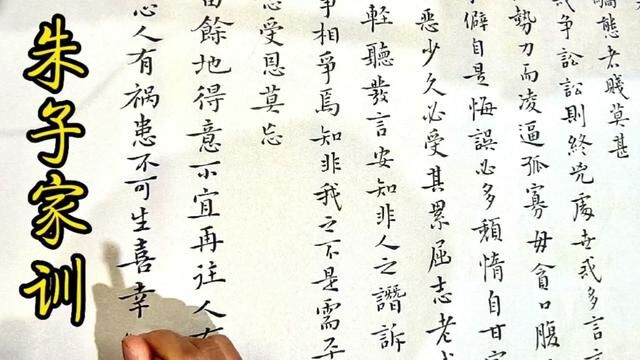 朱子家训
態者賤莫甚
争訟訟則終兇處世戒多言
勢力而凌逼孤寡毋貪口腹
僻自是悔誤必多頽惰自甘家
惡少久必受其累屈志老
輕聽發言安知非人之譖訴
相爭焉知非我之不是需平
受恩莫忘
餘地得意不宜再往人有
心人有祸患不可生喜幸